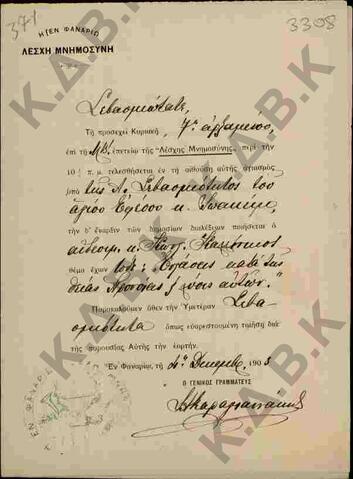 371
3308
Η ΕΝ ΦΑΝΑΡΙΩ
ΛΕΣΧΗ ΜΝΗΜΟΣΥΝΗ
Σεβασμιώτατε,
Τῇ προσεχεῖ Κυριακῇ, 7ῃ
ἐπὶ τῇ ΜΒʹ ἐπετείῳ τῆς «Λέσχης Μνημοσύνης» περὶ τὴν
10 π. μ. τελεσθήσεται ἐν τῇ αἰθούσῃ αὐτῆς ἁγιασμὸς
ὑπὸ τῆς Α. Σεβασμιότητος τοῦ
ἁγίου κ. Ἰωακείμ,
τὴν δ' ἔναρξιν τῶν δημοσίων διαλέξεων ποιήσεται ὁ
αἰδεσιμ. κ. Κωνστ.
θέμα ἔχων τόδε: κατὰ τῆς
θείας Προνοίας αὐτῶν."
Παρακαλοῦμεν ὅθεν τὴν Ὑμετέραν Σεβα-
σμιότητα ὅπως εὐαρεστουμένη τιμήσῃ διὰ
τῆς παρουσίας Αὐτῆς τὴν ἑορτήν.
Ἐν Φαναρίῳ, τῇ 4ῃ Δεκεμβρ. 1903
Ο ΓΕΝΙΚΟΣ ΓΡΑΜΜΑΤΕΥΣ
Κ.Δ.Β.Κ
Κ.Δ.Β.Κ
Κ.Δ.Β.Κ